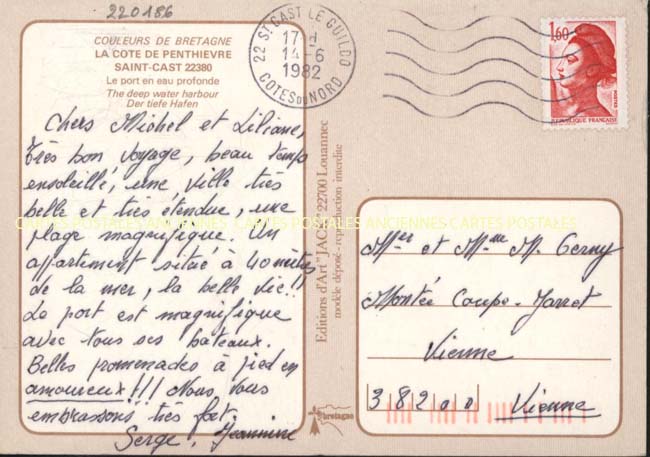 220186
COULEURS DE BRETAGNE
LA COTE DE PENTHIEVRE
SAINT-CAST 22380
Le port en eau profonde
The deep water harbour
Der tiefe Hafen
Chers Michel et Liliane,
Très bon voyage, beau temps
ensoleillé, une ville très
belle et très étendue, une
plage magnifique. Un
appartement situé à 40 mètres
de la mer, la belle vie!!
Le port est magnifique
avec tous ses bateaux.
Belles promenades à pied en
amoureux!!! Nous vous
embrassons très fort.
Serge, Jeannine
Editions d'Art "JACK" 22700 Louannec
modèle déposé - reproduction interdite
bretagne
22 ST CAST LE GUILDO
17 H
14-6
1982
COTES DU NORD
1,60
POSTES
REPUBLIQUE FRANÇAISE
CARTES POSTALES ANCIENNES CARTES POSTALES
Mr et Mme M. Cerny
Montée Coupe-Jarret
Vienne
38200 Vienne